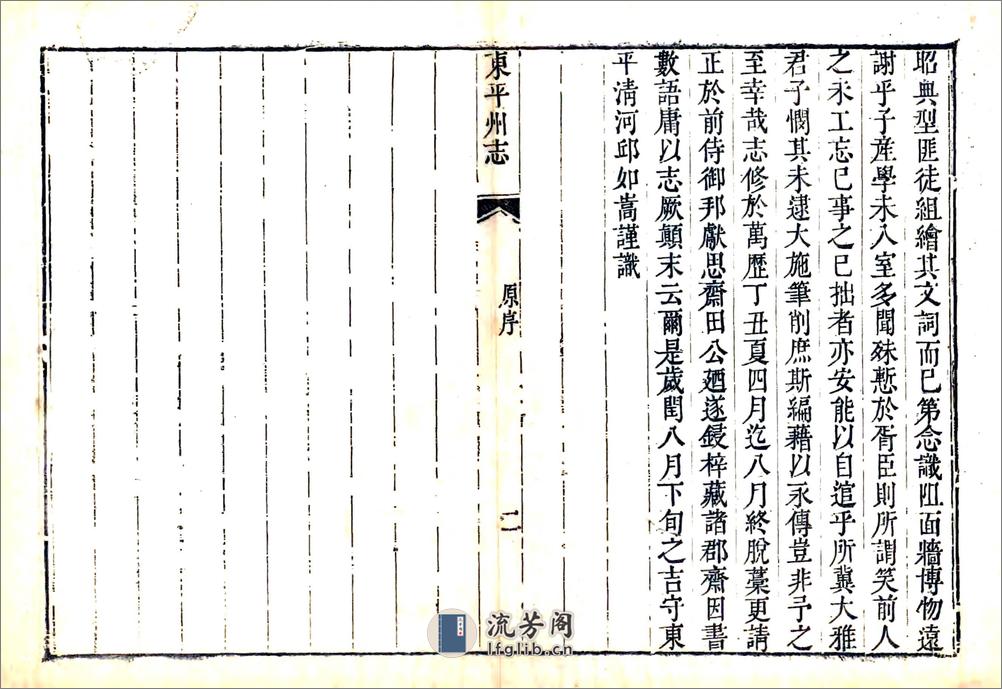 昭典型匪徒組繪其文詞而已第念識阻面牆博物遠
謝乎子産學未入室多聞殊慙於胥臣則所謂笑前人
之未工忘已事之已拙者亦安能以自逭乎所冀大雅
君子憫其未逮大施筆削庶斯編藉以永傳豈非予之
至幸哉志修於萬歷丁丑夏四月迄八月終脫藁更請
正於前侍御邦獻思齋田公廼遂鋟梓藏諸郡齋因書
數語庸以志厥顛末云爾是歲閏八月下旬之吉守東
平淸河邱如嵩謹識
東平州志
原序
二
流芳阁
lfglib.cn